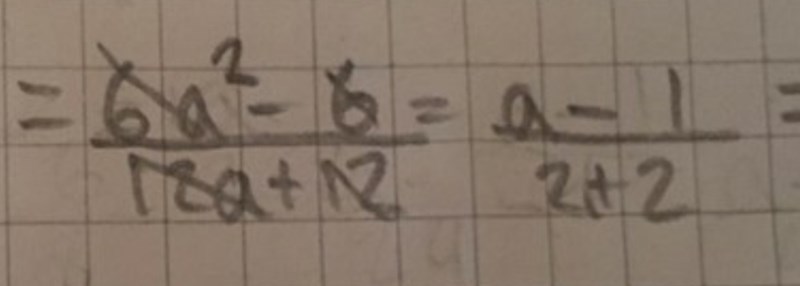 = 6a² - 6 / 12a + 12 = a - 1 / 2 + 2 =